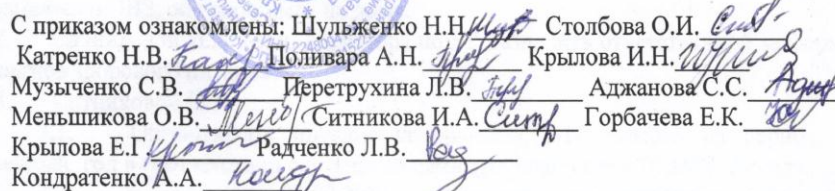 С приказом ознакомлены: Шульженко Н.Н. Столбова О.И.
Катренко Н.В. Поливара А.Н. Крылова И.Н.
Музыченко С.В. Перетрухина Л.В. Аджанова С.С.
Меньшикова О.В. Ситникова И.А. Горбачева Е.К.
Крылова Е.Г. Радченко Л.В.
Кондратенко А.А.